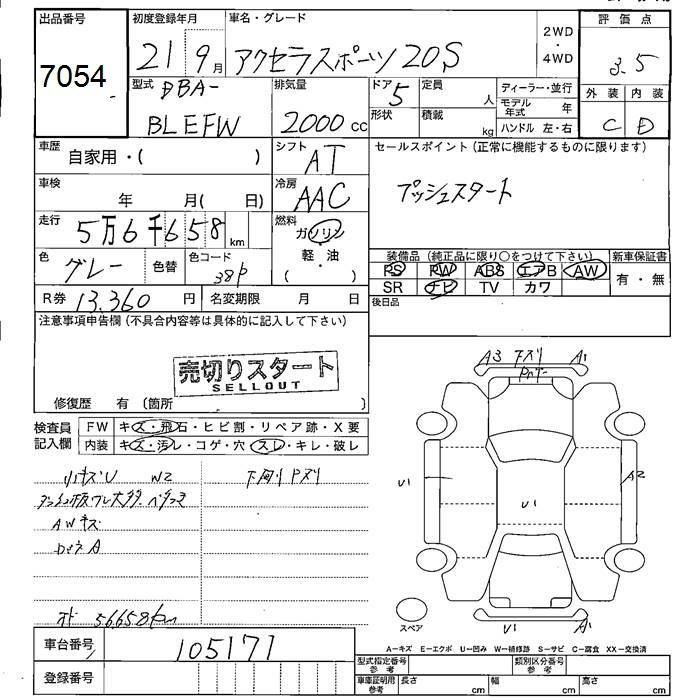 出品番号 初度登録年月 車名・グレード 2WD・4WD 評価点
7054 21 9月 アクセラスポーツ 20S 3.5
型式 DBA- 排気量 ドア 5 定員 人 ディーラー・並行 外装 内装
BLEFW 2000cc 形状 積載 kg モデル年式 年 C D
ハンドル 左・右
車歴 自家用・( ) シフト AT セールスポイント(正常に機能するものに限ります)
車検 年 月( 日) 冷房 AAC プッシュスタート
走行 5万6千658km 燃料 ガソリン
軽・油
( )
色 グレー 色替 色コード 38P 装備品(純正品に限り○をつけて下さい) 新車保証書
PS PW ABS エアB AW 有・無
SR ナビ TV カワ
R券 13,360円 名変期限 月 日 後日品
注意事項申告欄(不具合内容等は具体的に記入して下さい)
売切りスタート
SELLOUT
修復歴 有(箇所 )
検査員記入欄 FW キズ・飛石・ヒビ割・リペア跡・X要
内装 キズ・汚レ・コゲ・穴 スレ・キレ・破レ
小キズU W2
AWキズ
A
56658km
A3 下スリ A1
U1
U1
A2
U1 A1
スペア
車台番号 105171
登録番号
A-キズ E-エクボ U-凹み W-補修跡 S-サビ C-腐食 XX-交換済
型式指定番号 参考 類別区分番号 参考
車庫証明用 参考 長さ cm 幅 cm 高さ cm